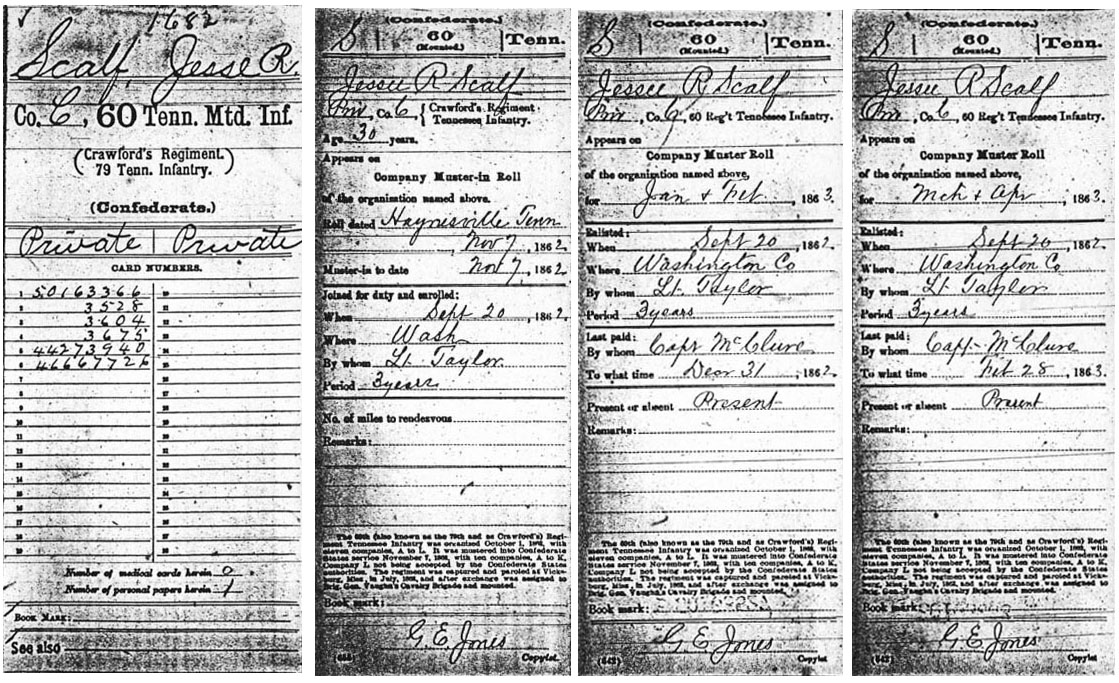 1682
Scalf, Jesse R.
Co. C, 60 Tenn. Mtd. Inf.
(Crawford's Regiment.
79 Tenn. Infantry.)
(Confederate.)
Private | Private
CARD NUMBERS.
1 50163366
2 3528
3 3604
4 3675
5 44273940
6 46667726
7
8
9
10
11
12
13
14
15
16
17
18
Number of medical cards herein 0
Number of personal papers herein 1
BOOK MARK:
See also
(Confederate.)
S | 60 (Mounted.) | Tenn.
Jessee R Scalf
Pvt, Co. C { Crawford's Regiment
Tennessee Infantry.
Age 30 years.
Appears on
Company Muster-in Roll
of the organization named above.
Roll dated Haynesville Tenn
Nov 7, 1862.
Muster-in to date Nov 7, 1862
Joined for duty and enrolled:
When Sept 20, 1862.
Where Wash
By whom Lt. Taylor
Period 3 years
No. of miles to rendezvous
Remarks:
The 60th (also known as the 79th and as Crawford's) Regiment Tennessee Infantry was organized October 1, 1862, with
eleven companies, A to L. It was mustered into Confederate
States service November 7, 1862, with ten companies, A to K,
Company L not being accepted by the Confederate States
authorities. The regiment was captured and paroled at Vicksburg, Miss., in July, 1863, and after exchange was assigned to
Brig. Gen. Vaughn's Cavalry Brigade and mounted.
Book mark:
G. E. Jones
Copyist.
(Confederate.)
S | 60 (Mounted.) | Tenn.
Jessee R Scalf
Co. C, 60 Reg't Tennessee Infantry.
Appears on
Company Muster Roll
of the organization named above,
for Jan & Feb, 1863.
Enlisted:
When Sept 20, 1862.
Where Washington Co
By whom Lt. Taylor
Period 3 years
Last paid:
By whom Capt McClure
To what time Decr 31, 1862.
Present or absent Present
Remarks:
The 60th (also known as the 79th and as Crawford's) Regiment Tennessee Infantry was organized October 1, 1862, with
eleven companies, A to L. It was mustered into Confederate
States service November 7, 1862, with ten companies, A to K,
Company L not being accepted by the Confederate States
authorities. The regiment was captured and paroled at Vicksburg, Miss., in July, 1863, and after exchange was assigned to
Brig. Gen. Vaughn's Cavalry Brigade and mounted.
Book mark:
G. E. Jones
(642) Copyist.
(Confederate.)
S | 60 (Mounted.) | Tenn.
Jessee R Scalf
Co. C, 60 Reg't Tennessee Infantry.
Appears on
Company Muster Roll
of the organization named above,
for Mch & Apr, 1863.
Enlisted:
When Sept 20, 1862.
Where Washington Co
By whom Lt Taylor
Period 3 years
Last paid:
By whom Capt McClure
To what time Feb 28, 1863.
Present or absent Present
Remarks:
The 60th (also known as the 79th and as Crawford's) Regiment Tennessee Infantry was organized October 1, 1862, with
eleven companies, A to L. It was mustered into Confederate
States service November 7, 1862, with ten companies, A to K,
Company L not being accepted by the Confederate States
authorities. The regiment was captured and paroled at Vicksburg, Miss., in July, 1863, and after exchange was assigned to
Brig. Gen. Vaughn's Cavalry Brigade and mounted.
Book mark:
G. E. Jones
(642) Copyist.